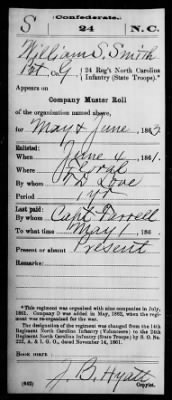 Confederate.
S 24 N.C.
William S. Smith
Pvt Co. G, 24 Reg't North Carolina
Infantry (State Troops).*
Appears on
Company Muster Roll
of the organization named above,
for May & June, 1862.
Enlisted:
When June 4, 1861.
Where
By whom D Love
Period 1 yr
Last paid:
By whom Capt Terrell
To what time May 1 186 .
Present or absent Present
Remarks:
*This regiment was organized with nine companies in July,
1861. Company D was added in May, 1862, when the regi-
ment was re-organized for the war.
The designation of the regiment was changed from the 14th
Regiment North Carolina Infantry (Volunteers) to the 24th
Regiment North Carolina Infantry (State Troops) by S. O. No.
222, A. & I. G. O., dated November 14, 1861.
Book mark:
(642) J. B. Hyatt
Copyist.